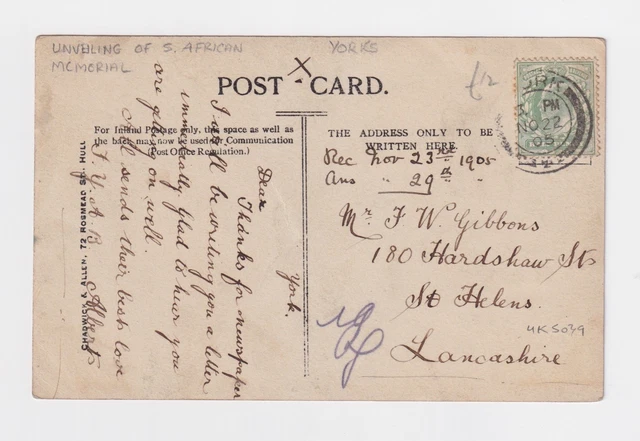 UNVEILING OF S. AFRICAN
MEMORIAL
YORKS
£12
POST CARD.
For Inland Postage only, this space as well as
the back may now be used for Communication
(Post Office Regulation.)
THE ADDRESS ONLY TO BE
WRITTEN HERE.
PM
NO 22
05
Rec Nov 23rd 1905
Ans " 29th "
Mr. F. W. Gibbons
180 Hardshaw St
St Helens.
Lancashire
UKS039
York.
Dear
Thanks for newspaper
I will be writing you a letter
immediately glad to hear you
are getting on well.
All sends their best love
Albert
CHADWICK & ALLEN, 72 ROSMEAD ST., HULL